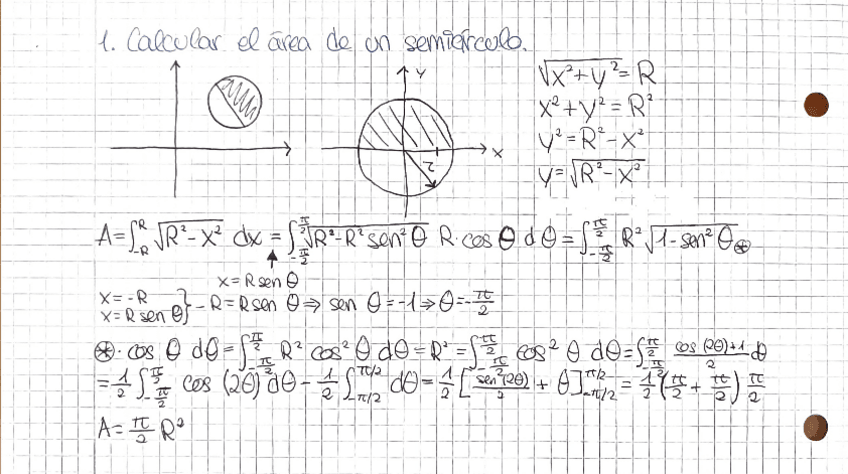 1. Calcular el área de un semicírculo.
Y
X
r
√x²+y² = R
x²+y² = R²
y² = R²-x²
y = √R²-x²
A = ∫_{-R}^{R} √R²-x² dx = ∫_{-π/2}^{π/2} √R²-R²sen²θ R·cos θ dθ = ∫_{-π/2}^{π/2} R² √1-sen²θ ⊛
x = R sen θ
x = -R
x = R sen θ } -R = R sen θ ⇒ sen θ = -1 ⇒ θ = -π/2
⊛· cos θ dθ = ∫_{-π/2}^{π/2} R² cos² θ dθ = R² = ∫_{-π/2}^{π/2} cos² θ dθ = ∫_{-π/2}^{π/2} cos(2θ)+1/2 dθ
= 1/2 ∫_{-π/2}^{π/2} cos (2θ) dθ - 1/2 ∫_{-π/2}^{π/2} dθ = 1/2 [sen(2θ)/2 + θ]_{-π/2}^{π/2} = 1/2 (π/2 + π/2) π/2
A = π/2 R²